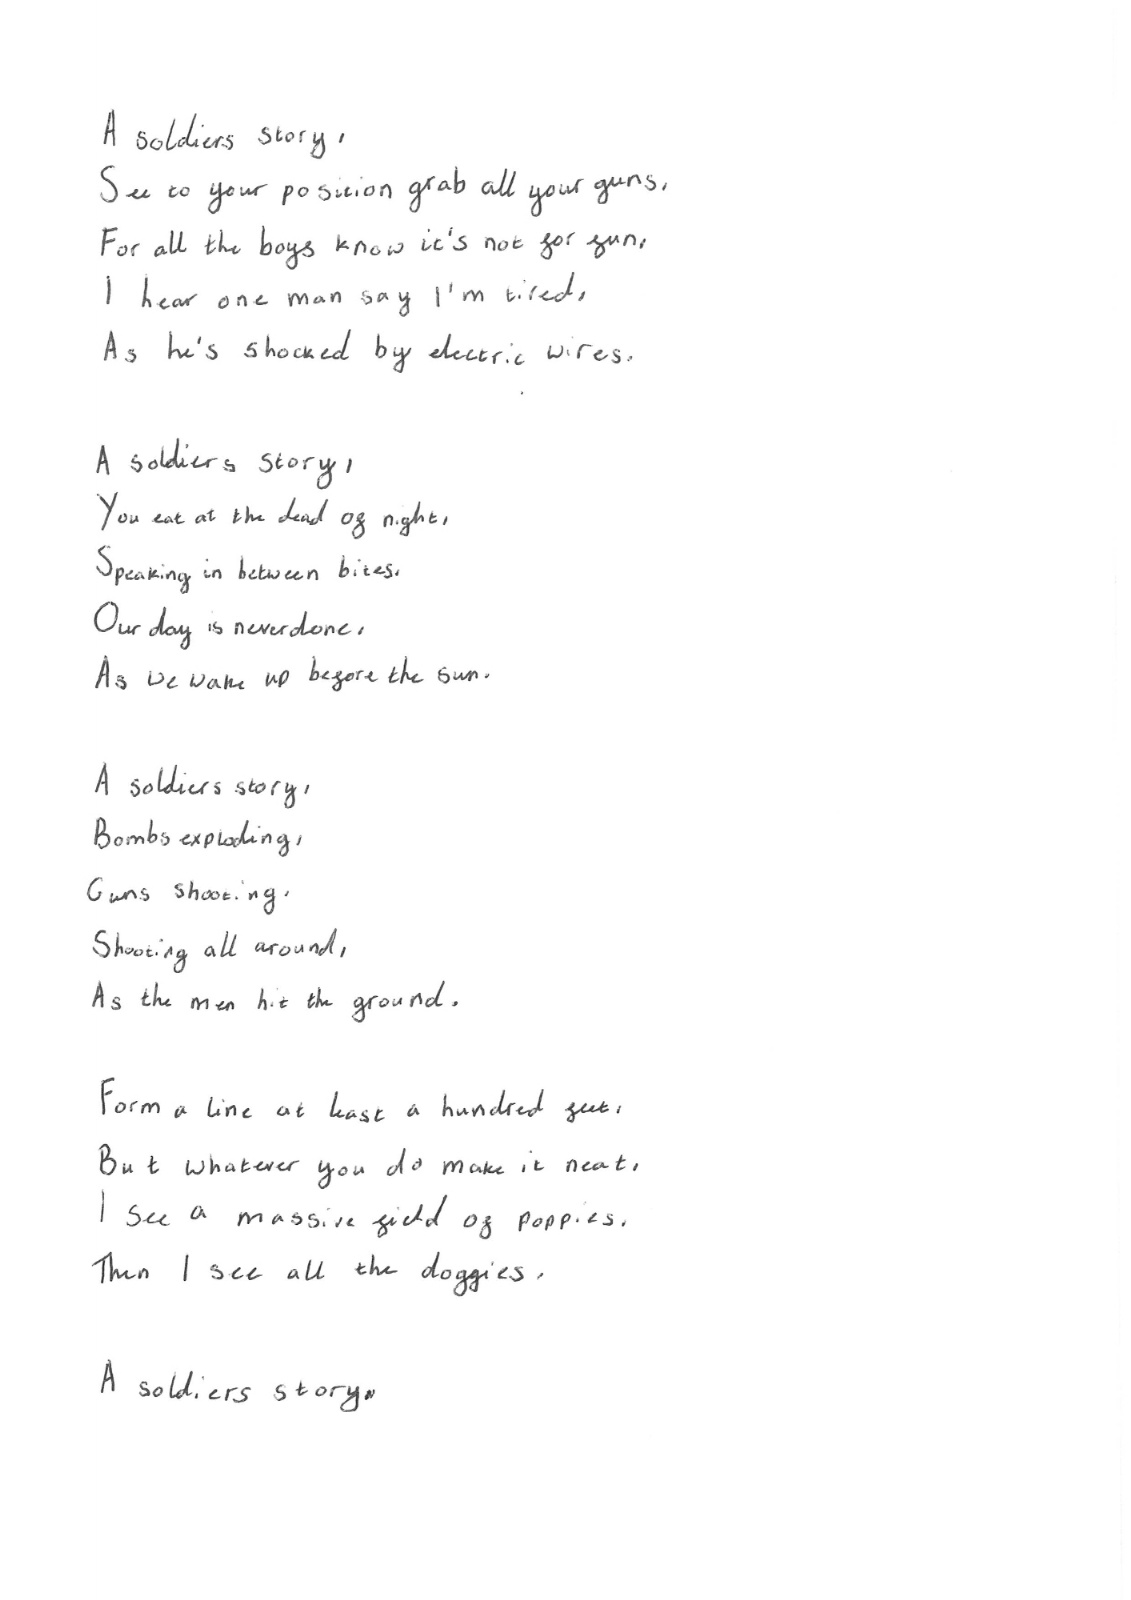 A soldiers story,
See to your position grab all your guns,
For all the boys know it's not for fun,
I hear one man say I'm tired,
As he's shocked by electric wires.
A soldiers story,
You eat at the dead of night,
Speaking in between bites.
Our day is never done,
As we wake up before the sun.
A soldiers story,
Bombs exploding,
Guns shooting.
Shooting all around,
As the men hit the ground.
Form a line at least a hundred feet,
But whatever you do make it neat,
I see a massive field of poppies,
Then I see all the doggies.
A soldiers story.